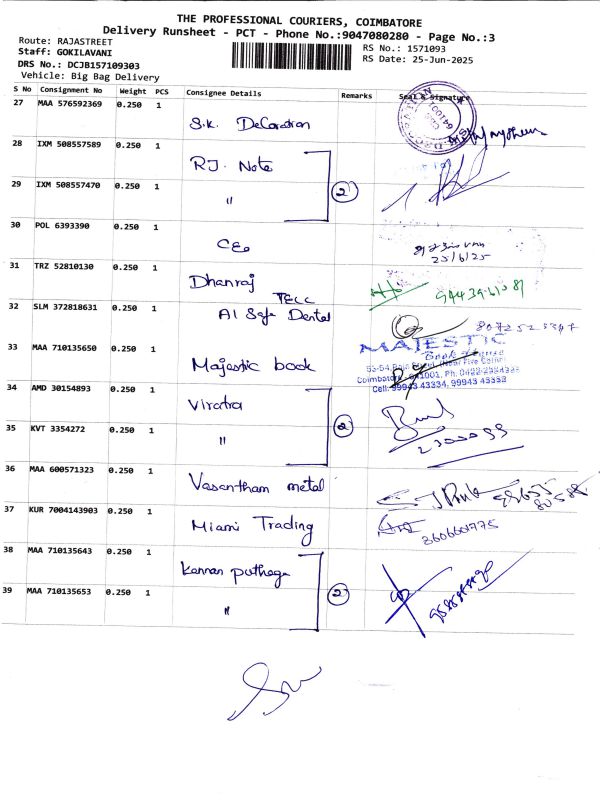 THE PROFESSIONAL COURIERS, COIMBATORE
Delivery Runsheet - PCT - Phone No.:9047080280 - Page No.:3
Route: RAJASTREET
RS No.: 1571093
Staff: GOKILAVANI
RS Date: 25-Jun-2025
DRS No.: DCJB157109303
Vehicle: Big Bag Delivery
S No Consignment No Weight PCS Consignee Details Remarks Seal & Signature
27 MAA 576592369 0.250 1 S.K. Decoration
28 IXM 508557589 0.250 1 RJ. Note
29 IXM 508557470 0.250 1 " 2
30 POL 6393390 0.250 1 CEO
25/6/25
31 TRZ 52810130 0.250 1 Dhanraj
TECC
32 SLM 372818631 0.250 1 AI Safe Dental
33 MAA 710135650 0.250 1 Majestic book
MAJESTIC
Book House
Cell: 99943 43334, 99943 43333
34 AMD 30154893 0.250 1 Viratra
35 KVT 3354272 0.250 1 " 2
36 MAA 600571323 0.250 1 Vasantham metal
37 KUR 7004143903 0.250 1 Miami Trading
38 MAA 710135643 0.250 1 Kannan puthaga
39 MAA 710135653 0.250 1 " 2